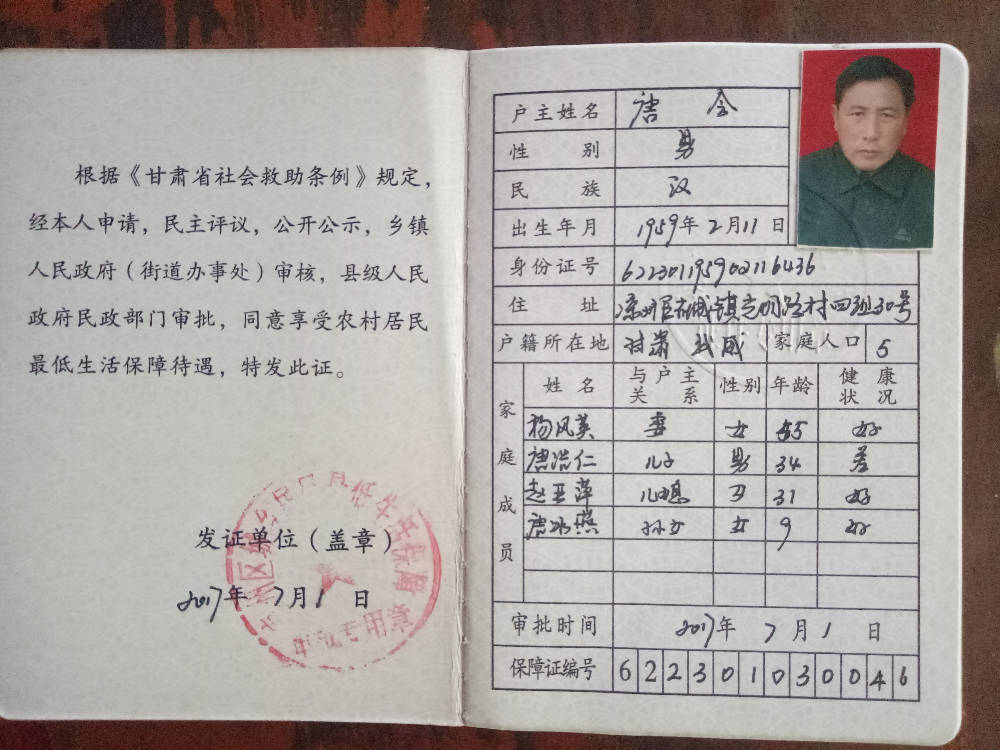 根据《甘肃省社会救助条例》规定，
经本人申请，民主评议，公开公示，乡镇
人民政府（街道办事处）审核，县级人民
政府民政部门审批，同意享受农村居民
最低生活保障待遇，特发此证。
发证单位（盖章）
2017年7月1日
户主姓名 唐会
性别 男
民族 汉
出生年月 1959年2月11日
身份证号 622301195902116436
住址 凉州区 镇 村四组30号
户籍所在地 甘肃 武威 家庭人口 5
家庭成员 姓名 与户主关系 性别 年龄 健康状况
杨凤英 妻 女 55 好
唐浩仁 儿子 男 34 差
赵亚萍 儿媳 31 好
唐冰燕 孙女 女 9 好
审批时间 2017年7月1日
保障证编号 622301030046